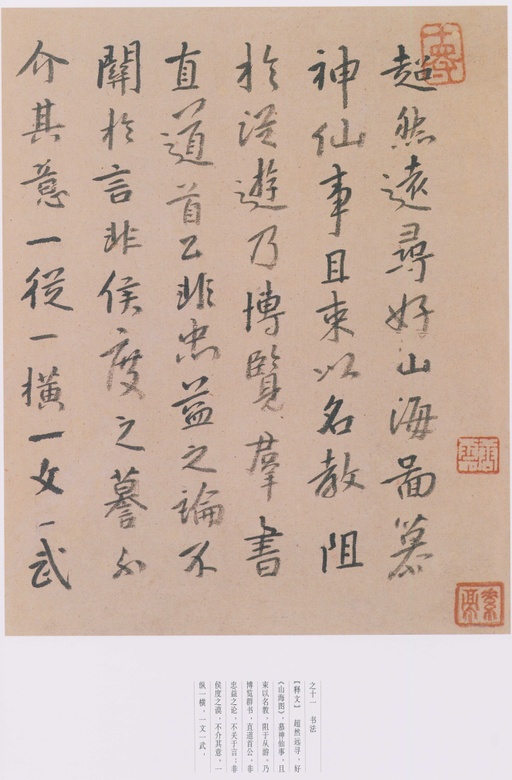 超然遠尋好山海啚慕
神仙事且束以名教阻
於從遊乃博覽羣書
直道首公非忠益之論不
關於言非侯度之謩不
介其意一從一橫一文一武
之十一 书法
【释文】 超然远寻，好
《山海图》，慕神仙事，且
束以名教，阻于从游，乃
博览群书，直道首公，非
忠益之论，不关于言；非
侯度之谟，不介其意，一
纵一横，一文一武，